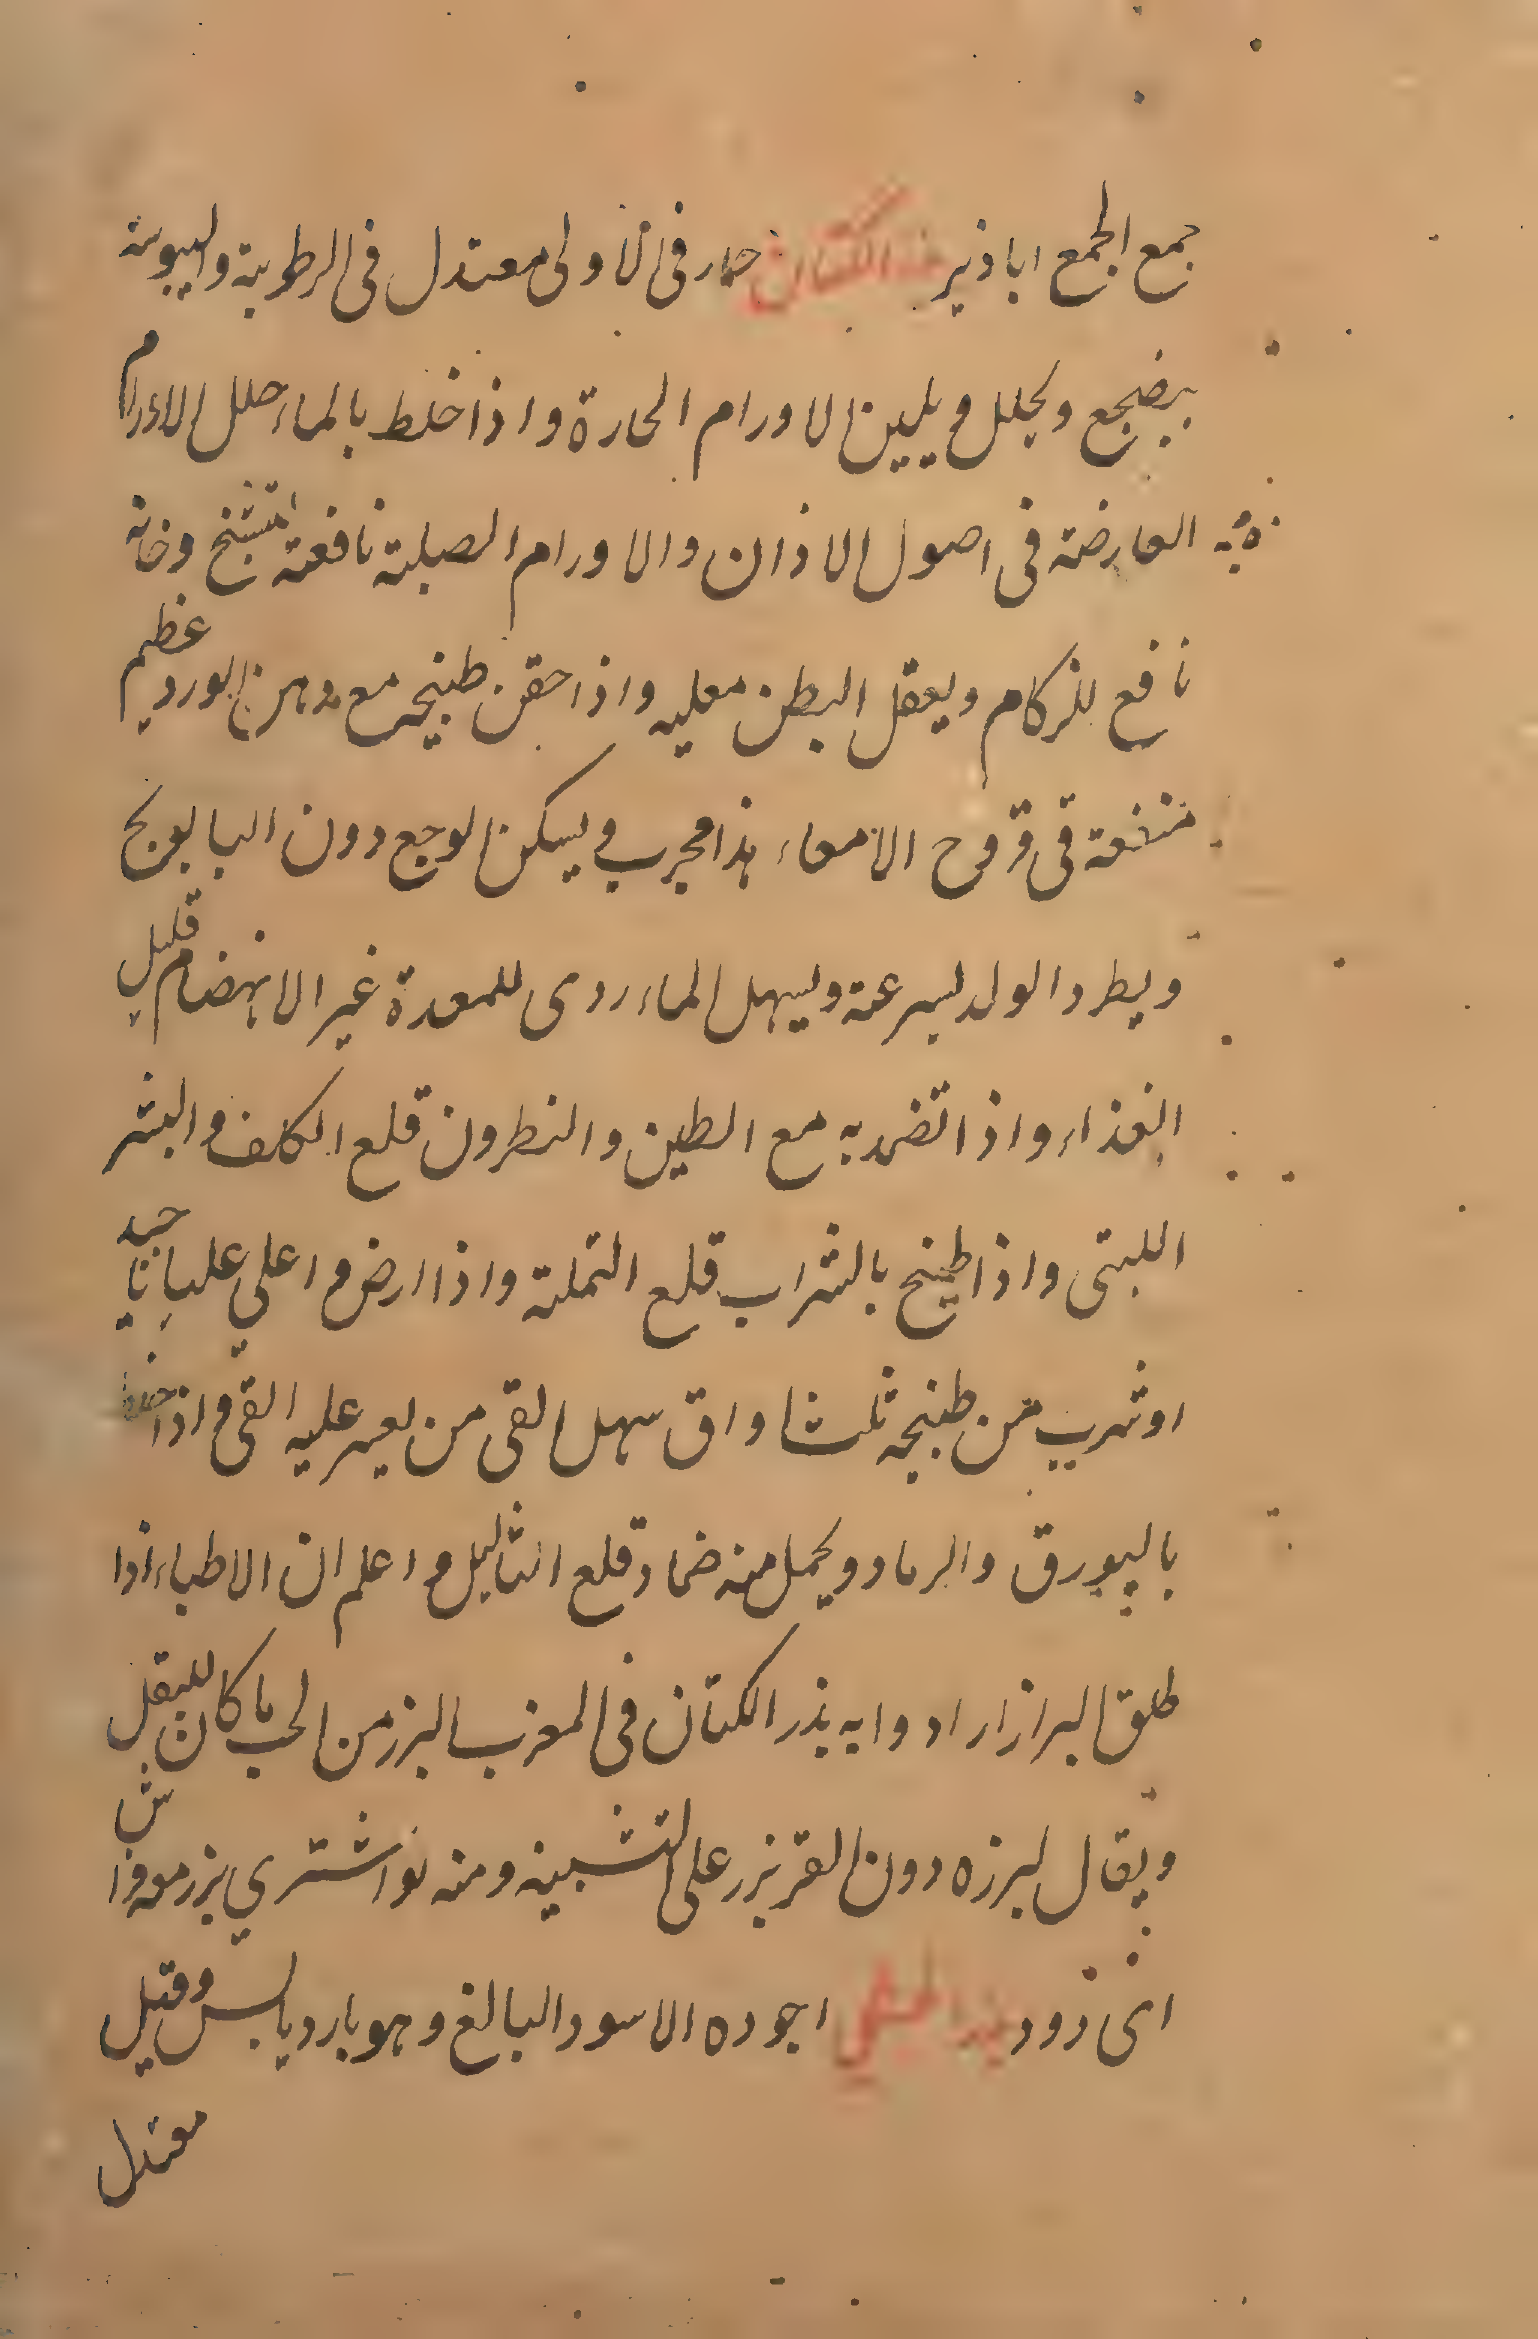 جمع الجمع اباذير بذر الكتان حار فى الاولى معتدل فى الرطوبة واليبوسة
ينضج ويحلل ويلين الاورام الحارة واذا خلط بالماء حلل الاورام
العارضة فى اصول الاذان والاورام الصلبة نافعة لتشنج دخانه
نافع للزكام ويعقل البطن مقليه واذا حقن طبيخه مع دهن الورد عظم
منفعة فى قروح الامعاء هذا مجرب ويسكن الوجع دون البابونج
ويطرد الولد بسرعة ويسهل الماء ردى للمعدة غير الانهضام قليل
الغذاء واذا تضمد به مع الطين والنطرون قلع الكلف والبثر
اللبنى واذا طبخ بالشراب قلع النملة واذا ارض واعلي عليانا جيد
او شرب من طبيخه ثلث اواق سهل القى من يعسر عليه القى واذا خلط
بالبورق والرماد ويحمل منه ضماد قلع الثاليل واعلم ان الاطباء اذا
طلق البرازار ادوا به بذر الكتان فى المغرب البزر من الحب ما كان للبقل
ويقال لبزره دون القز بزر على التشبيه ومنه لو اشترى بزر معه فراش
انى دود بذر الخطمى اجوده الاسود البالغ وهو بارد يابس وقيل
معتدل